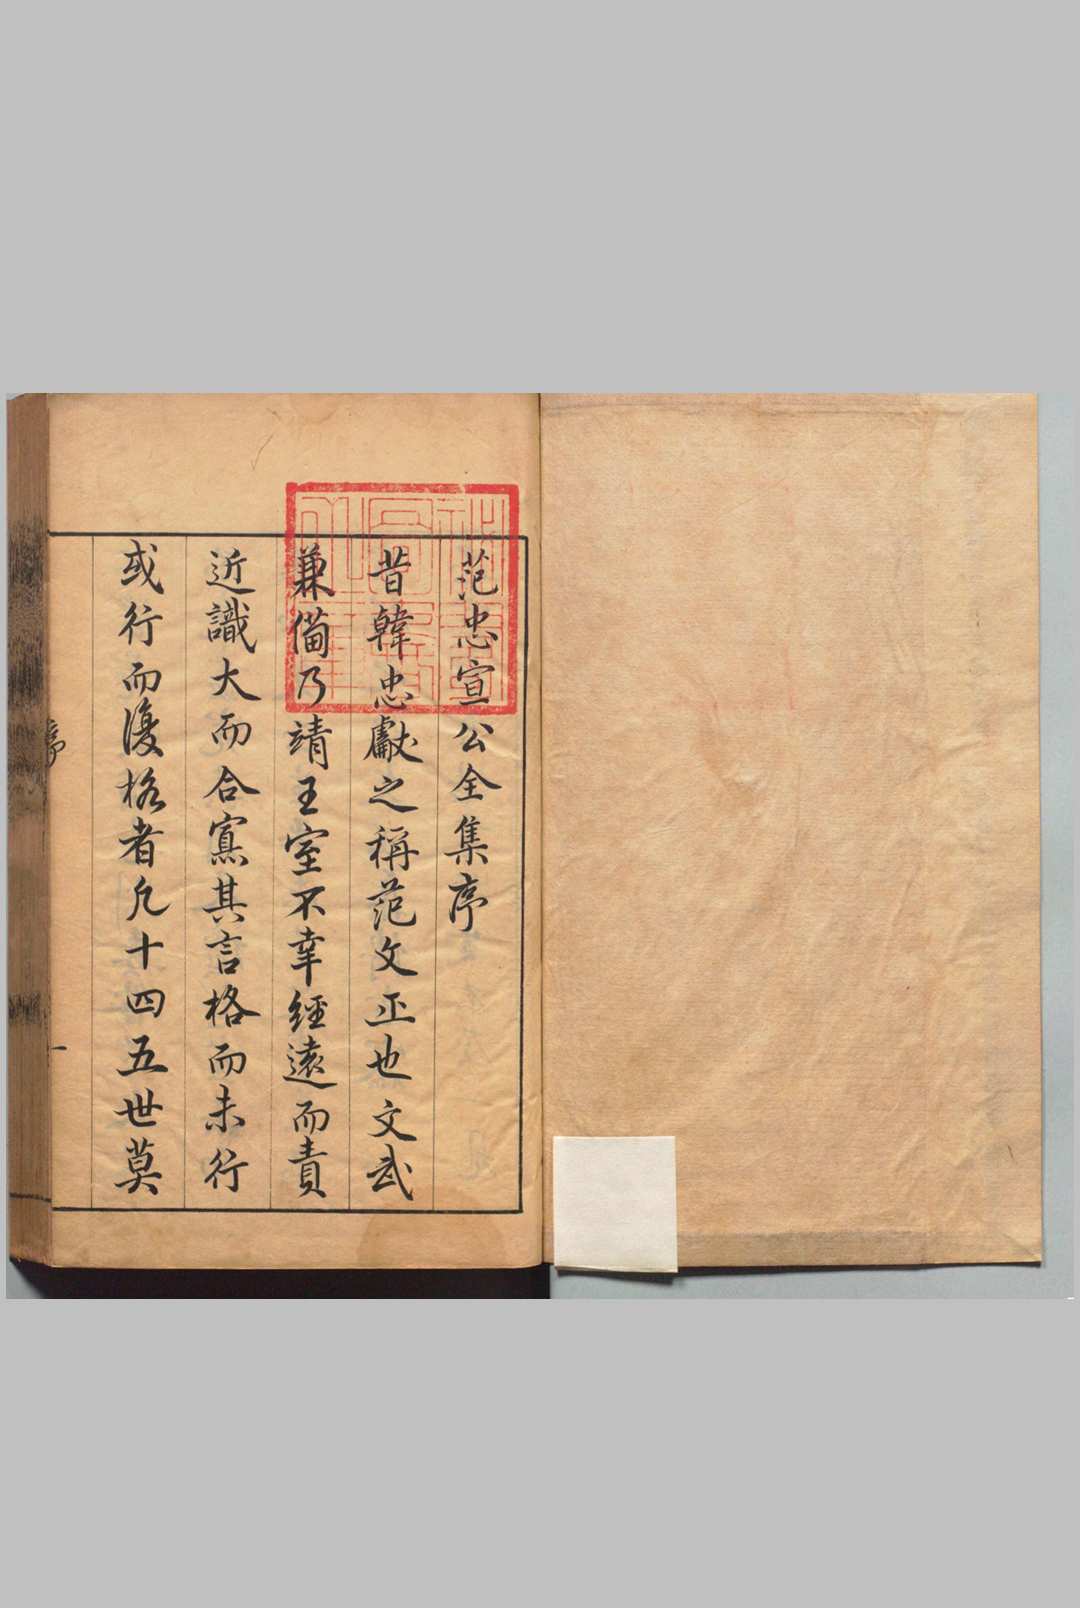 范忠宣公全集序
昔韓忠獻之稱范文正也文武
兼備乃靖王室不幸經遠而責
近識大而合寡其言格而未行
或行而復格者凢十四五世莫
序
一